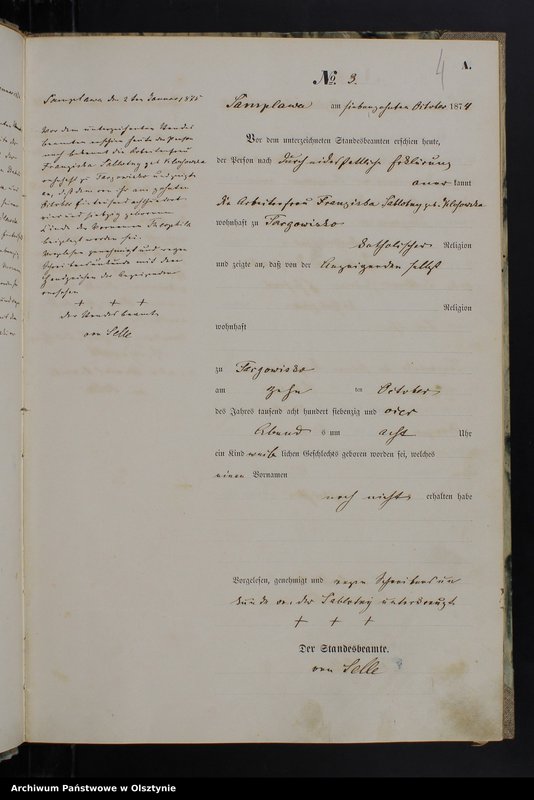 4
A.
No. 3.
Samplawa den 2ten Januar 1875
Vor dem unterzeichneten Standes
beamten erschien heute der Person
nach bekannt die Arbeiterfrau
Franziska Sablotny geb. Klossowska
wohnhaft zu Targowisko und zeigte
an, daß dem von ihr am zehnten
October Eintausend achthundert
vier und siebzig geborenen
Kinde der Vorname
beigelegt worden sei.
Vorgelesen genehmigt und wegen
Schreibensunkunde mit dem
Handzeichen der Anzeigenden
versehen
+ + +
der Standesbeamte
von Selle
Samplawa am siebenzehnten October 1874
Vor dem unterzeichneten Standesbeamten erschien heute,
der Person nach durch eidesstattliche Erklärung
anerkannt
die Arbeiterfrau Franziska Sablotny geb. Klossowska
wohnhaft zu Targowisko
katholischer Religion
und zeigte an, daß von der Anzeigenden selbst
Religion
wohnhaft
zu Targowisko
am zehn ten October
des Jahres tausend acht hundert siebenzig und vier
Abend s um acht Uhr
ein Kind weib lichen Geschlechts geboren worden sei, welches
einen Vornamen
noch nicht erhalten habe
Vorgelesen, genehmigt und wegen Schreibensun
kunde von der Sablotny unterkreuzt
+ + +
Der Standesbeamte.
von Selle
Archiwum Państwowe w Olsztynie